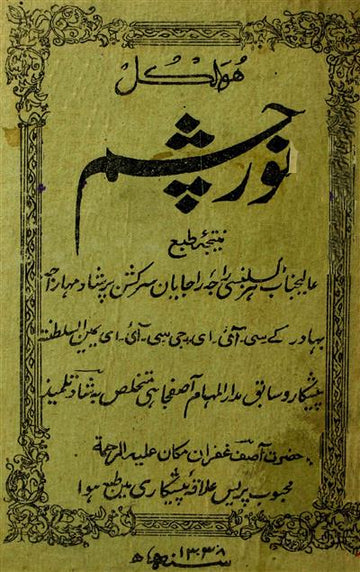 ھوالکل
نور چشم
نتیجۂ طبع
عالیجناب ہزاکسلنسی راجۂ راجایان سرکشن پرشاد مہاراجہ
بہادر کے۔سی۔آئی۔ای۔جی۔سی۔آئی۔ای یمین السلطنت
پیشکار و سابق مدارالمہام آصفجاہی متخلص بہ شاد تلمیذ
حضرت آصف غفران مکان علیہ الرحمۃ
محبوب پریس علاقۂ پیشکاری مین طبع ہوا
سنہ ۱۳۳۸ ھ